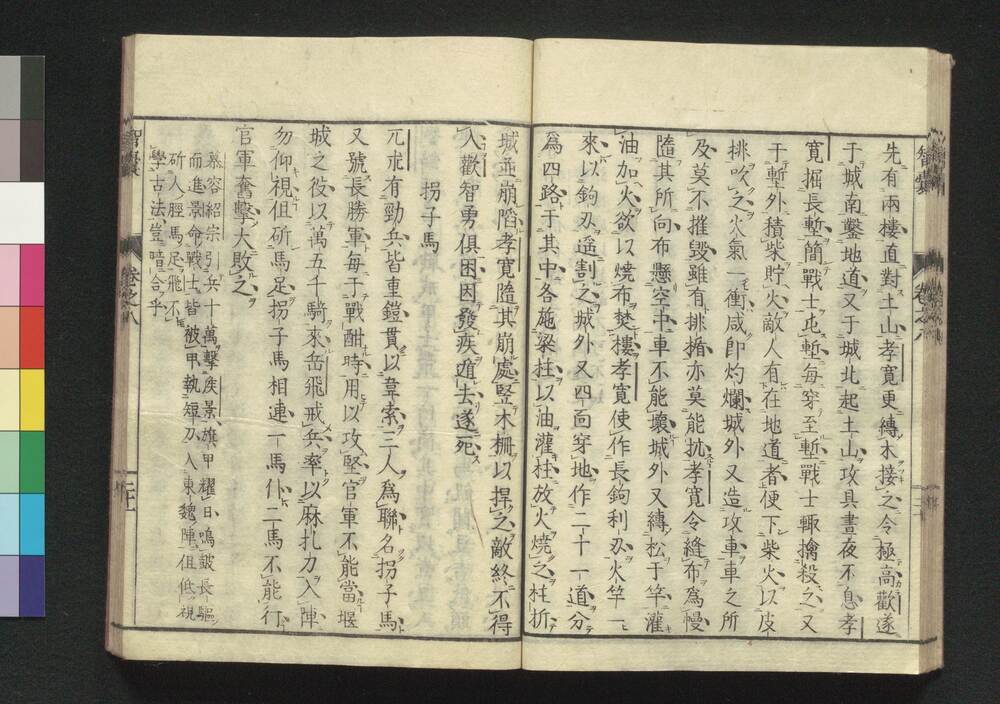 先有兩樓直對土山孝寬更縛木接之令極高歡遂
于城南鑿地道又于城北起土山攻具晝夜不息孝
寬掘長塹簡戰士屯塹每穿至塹戰士輒擒殺之又
于塹外積柴貯火敵人有在地道者便下柴火以皮
排吹之火氣一衝咸卽灼爛城外又造攻車車之所
及莫不摧毀雖有排楯亦莫能抗孝寬令縫布爲幔
隨其所向布懸空中車不能壞城外又縛松于竿灌
油加火欲以燒布焚樓孝寬使作長鉤利刃火竿一
來以鉤刃遙割之城外又四面穿地作二十一道分
爲四路于其中各施梁柱以油灌柱放火燒之柱折
城並崩陷孝寬隨其崩處竪木柵以捍之敵終不得
入歡智勇俱困因發疾遁去遂死
拐子馬
兀朮有勁兵皆重鎧貫以韋索三人爲聯名拐子馬
又號長勝軍每于戰酣時用以攻堅官軍不能當堰
城之役以萬五千騎來岳飛戒兵率以麻扎刀入陣
勿仰視但斫馬足拐子馬相連一馬仆二馬不能行
官軍奮擊大敗之
慕容紹宗引兵十萬擊侯景旗甲耀日鳴皷長驅
而進景命戰士皆被甲執短刀入東魏陣但低視
斫人脛馬足飛不
學古法豈暗合乎
智囊
卷之八
智囊
卷之八